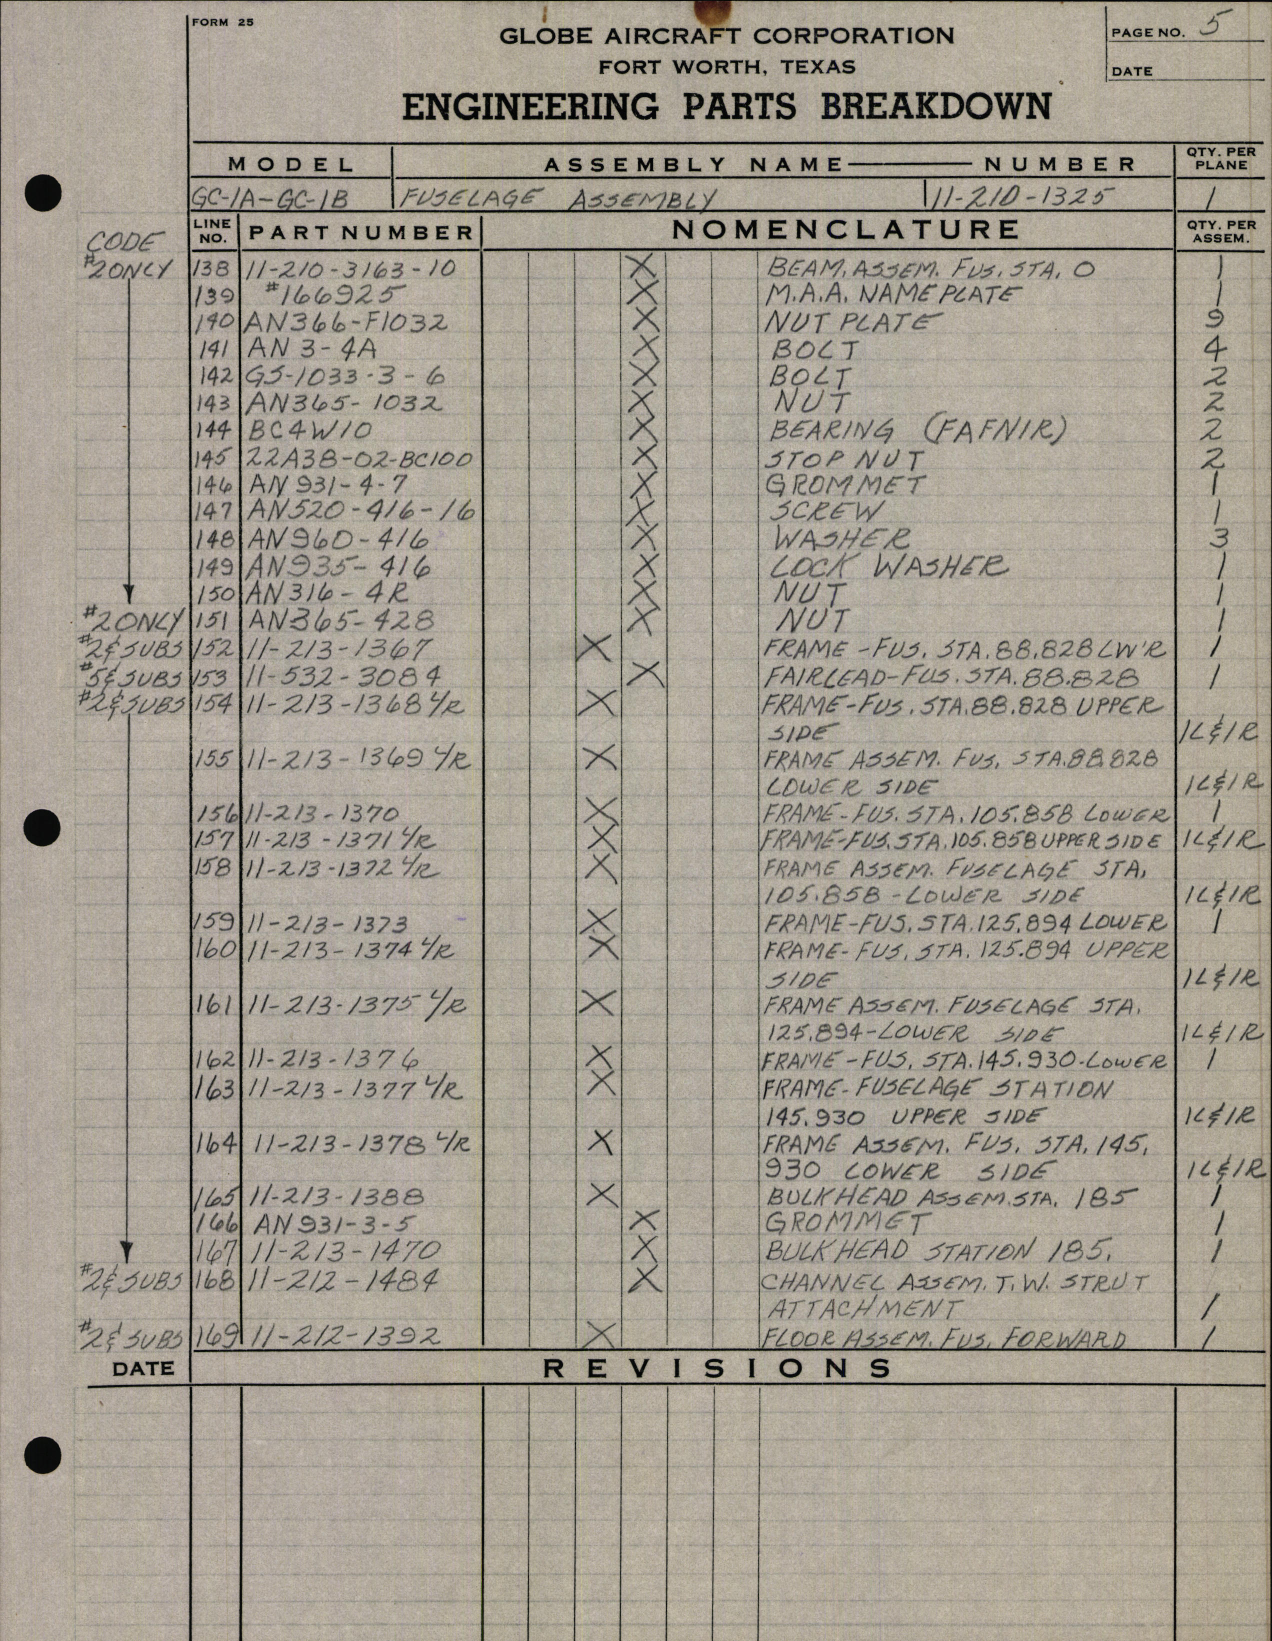 FORM 25
GLOBE AIRCRAFT CORPORATION
FORT WORTH, TEXAS
ENGINEERING PARTS BREAKDOWN
PAGE NO. 5
DATE
MODEL ASSEMBLY NAME—NUMBER QTY. PER PLANE
GC-1A-GC-1B FUSELAGE ASSEMBLY 11-210-1325 1
CODE LINE NO. PART NUMBER NOMENCLATURE QTY. PER ASSEM.
#2 ONLY 138 11-210-3163-10 X BEAM, ASSEM. FUS. STA. 0 1
139 #166925 X M.A.A. NAME PLATE 1
140 AN366-F1032 X NUT PLATE 9
141 AN 3-4A X BOLT 4
142 GS-1033-3-6 X BOLT 2
143 AN365-1032 X NUT 2
144 BC4W10 X BEARING (FAFNIR) 2
145 22A38-02-BC100 X STOP NUT 2
146 AN 931-4-7 X GROMMET 1
147 AN520-416-16 X SCREW 1
148 AN960-416 X WASHER 3
149 AN935-416 X LOCK WASHER 1
150 AN316-4R X NUT 1
#2 ONLY 151 AN365-428 X NUT 1
#2 & SUBS 152 11-213-1367 X FRAME - FUS. STA. 88.828 LW'R 1
#5 & SUBS 153 11-532-3084 X FAIRLEAD-FUS. STA. 88.828 1
#2 & SUBS 154 11-213-1368 L/R X FRAME-FUS. STA. 88.828 UPPER
SIDE 1L & 1R
155 11-213-1369 L/R X FRAME ASSEM. FUS. STA. 88.828
LOWER SIDE 1L & 1R
156 11-213-1370 X FRAME-FUS. STA. 105.858 LOWER 1
157 11-213-1371 L/R X FRAME-FUS. STA. 105.858 UPPER SIDE 1L & 1R
158 11-213-1372 L/R X FRAME ASSEM. FUSELAGE STA.
105.858 - LOWER SIDE 1L & 1R
159 11-213-1373 X FRAME-FUS. STA. 125.894 LOWER 1
160 11-213-1374 L/R X FRAME-FUS. STA. 125.894 UPPER
SIDE 1L & 1R
161 11-213-1375 L/R X FRAME ASSEM. FUSELAGE STA.
125.894-LOWER SIDE 1L & 1R
162 11-213-1376 X FRAME-FUS. STA. 145.930-LOWER 1
163 11-213-1377 L/R X FRAME-FUSELAGE STATION
145.930 UPPER SIDE 1L & 1R
164 11-213-1378 L/R X FRAME ASSEM. FUS. STA. 145.
930 LOWER SIDE 1L & 1R
165 11-213-1388 X BULKHEAD ASSEM. STA. 185 1
166 AN 931-3-5 X GROMMET 1
167 11-213-1470 X BULKHEAD STATION 185. 1
#2 & SUBS 168 11-212-1484 X CHANNEL ASSEM. T.W. STRUT
ATTACHMENT 1
#2 & SUBS 169 11-212-1392 X FLOOR ASSEM. FUS. FORWARD 1
DATE REVISIONS